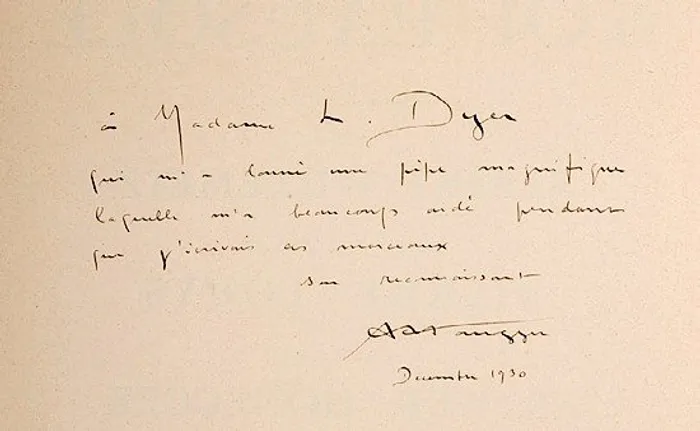 à Madame L. Dyer
qui m'a donné une pipe magnifique
laquelle m'a beaucoup aidé pendant
que j'écrivais ces morceaux
son reconnaissant
Decembre 1930